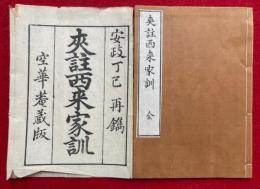 安政丁巳 再鐫
夾註西来家訓
空華菴蔵版
夾註西来家訓 全